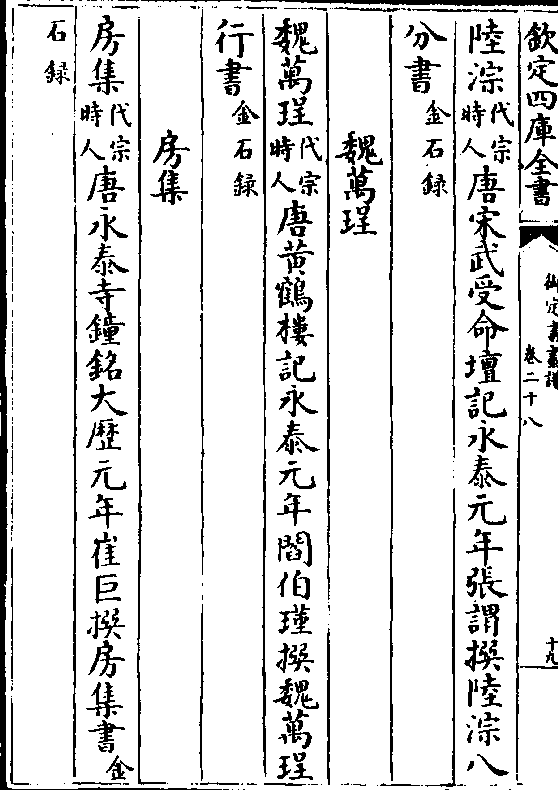 欽定四庫全書
御定書畫譜
卷二十八
十九
陸淙代宗時人唐宋武受命壇記永泰元年張謂撰陸淙八
分書金石録
魏萬珵
魏萬珵代宗時人唐黃鶴樓記永泰元年閻伯瑾撰魏萬珵
行書金石録
房集
房集代宗時人唐永泰寺鐘銘大歷元年崔巨撰房集書金
石録